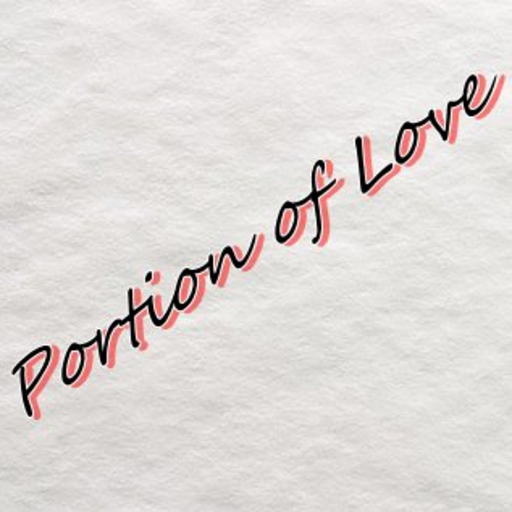 Portion of Love